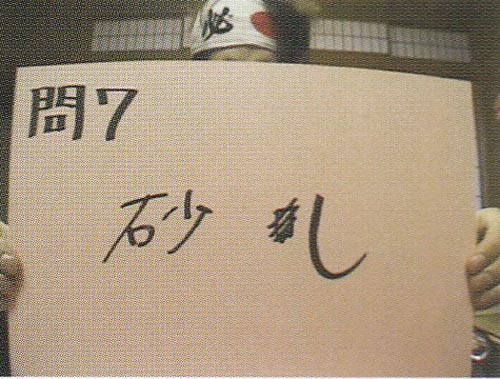 必
問7
砂 し